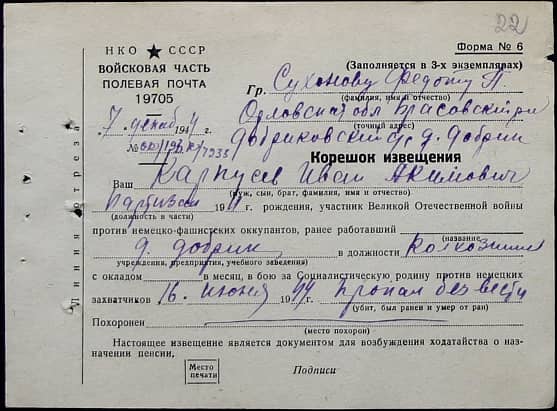 22
НКО ★ СССР
ВОЙСКОВАЯ ЧАСТЬ
ПОЛЕВАЯ ПОЧТА
19705
7 декаб 1944 г.
№
Линия отреза
Форма № 6
(Заполняется в 3-х экземплярах)
Гр. Сухонову Федоту П.
(фамилия, имя и отчество)
Орловская обл Брасовский р-н
(точный адрес)
Добриковский с/с д. Добрик
Корешок извещения
Ваш Карпусев Иван Акимович
(муж, сын, брат, фамилия, имя и отчество)
партизан 19 г. рождения, участник Великой Отечественной войны
(должность в части)
против немецко-фашистских оккупантов, ранее работавший
(название
д. Добрик в должности Колхозник
учреждения, предприятия, учебного заведения)
с окладом в месяц, в бою за Социалистическую родину против немецких
захватчиков 16 июня 1944 г. пропал без вести
(убит, был ранен и умер от ран)
Похоронен
(место похорон)
Настоящее извещение является документом для возбуждения ходатайства о на-
значении пенсии.
Место
печати
Подписи